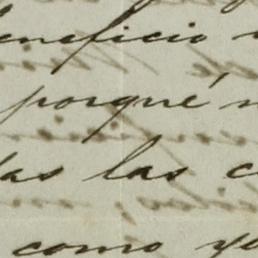 beneficio
porqué
las c
como yo